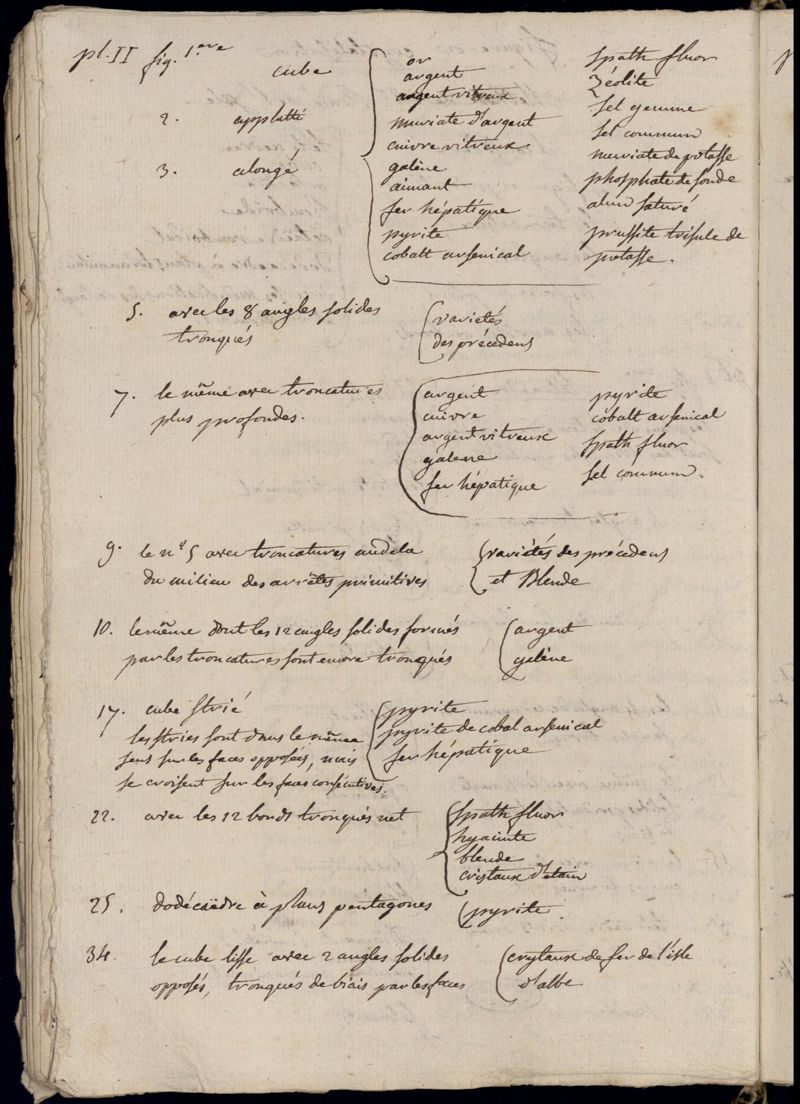 pl. II fig. 1.ere
cube
2. applatti
3. alongé
or
argent
argent vitreux
muriate d'argent
cuivre vitreux
galène
aimant
fer hépatique
pyrite
cobalt arsenical
spath fluor
zéolite
sel gemme
sel commun
muriate de potasse
phosphate de soude
alun saturé
prussite trisule de
potasse.
5. avec les 8 angles solides
tronqués
variétés
des précédens
7. le même avec troncatures
plus profondes.
argent
cuivre
argent vitreux
galene
fer hépatique
pyrite
cobalt arsenical
spath fluor
sel commun.
9. le n.º 5 avec troncatures audela
du milieu des arrêtes primitives
variétés des précédens
et Blende
10. le même dont les 12 angles solides formés
par les troncatures sont encore tronqués
argent
galène
17. cube strié
les stries sont dans le même
sens sur les faces opposées, mais
se croisent sur les faces consécutives.
pyrite
pyrite de cobal arsenical
fer hépatique
22. avec les 12 bords tronqués net
spath fluor
hyacinte
blende
cristaux d'etain
25. dodécaëdre à plans pentagones
pyrite.
34. le cube lisse avec 2 angles solides
opposés, tronqués de biais par les faces
crytaux de fer de l'isle
d'albe